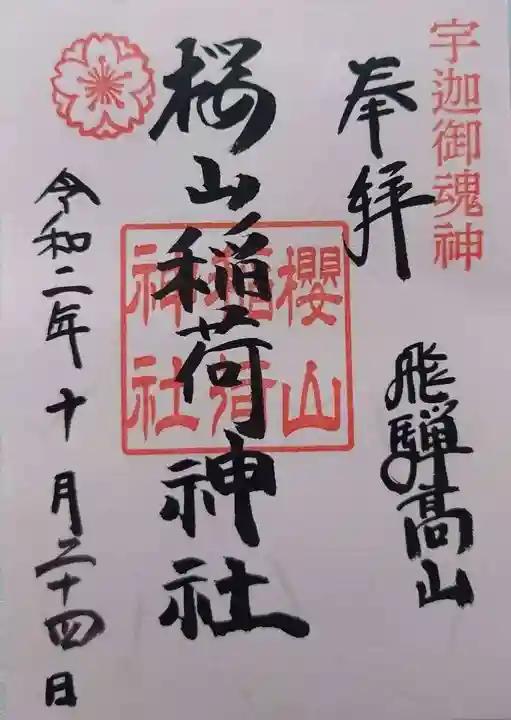 宇迦御魂神
奉拝
飛騨高山
桜山稲荷神社
櫻山
稲荷
神社
令和二年十月二十四日